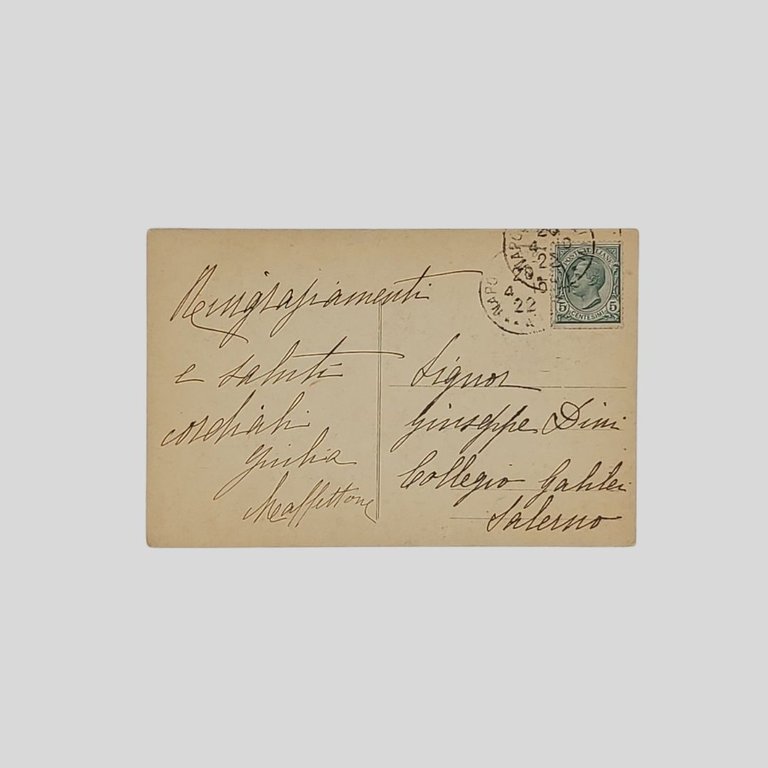 Ringraziamenti
e saluti
cordiali
Giulia
Maffettone
Signor
Giuseppe Dini
Collegio Galilei
Salerno
NAPO
4
22
POSTE ITALIANE
5 CENTESIMI 5